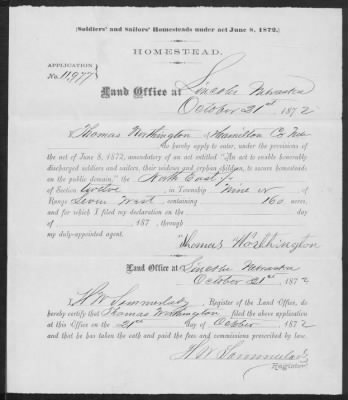 (Soldiers' and Sailors' Homesteads under act June 8, 1872.)
HOMESTEAD.
APPLICATION
No. 11,977
Land Office at Lincoln Nebraska
October 21st 1872
I, Thomas Worthington of Hamilton Co Neb
do hereby apply to enter, under the provisions
of the act of June 8, 1872, amendatory of an act entitled "An act to enable honorably
discharged soldiers and sailors, their widows and orphan children, to secure homesteads
on the public domain," the North East 1/4
of Section twelve in Township Nine N
Range Seven West, containing 160 acres,
and for which I filed my declaration on the day
of , 187 , through
my duly-appointed agent.
Thomas Worthington
Land Office at Lincoln Nebraska
October 21st 1872
I, H W Sommerlad, Register of the Land Office, do
hereby certify that Thomas Worthington filed the above application
at this Office on the 21st day of October 1872
and that he has taken the oath and paid the fees and commissions prescribed by law.
H W Sommerlad,
Register.